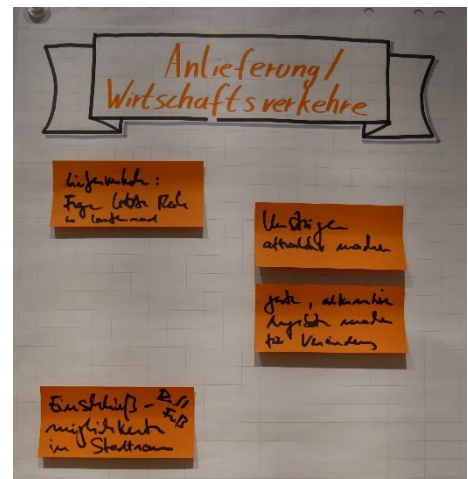 Anlieferung/
Wirtschaftsverkehre
Lieferverkehr:
Frage letzte Meile
Umstieg
attraktiv machen
gute, alternative
Angebote machen
für Veränderung
Einschließ-
möglichkeiten
im Stadtraum